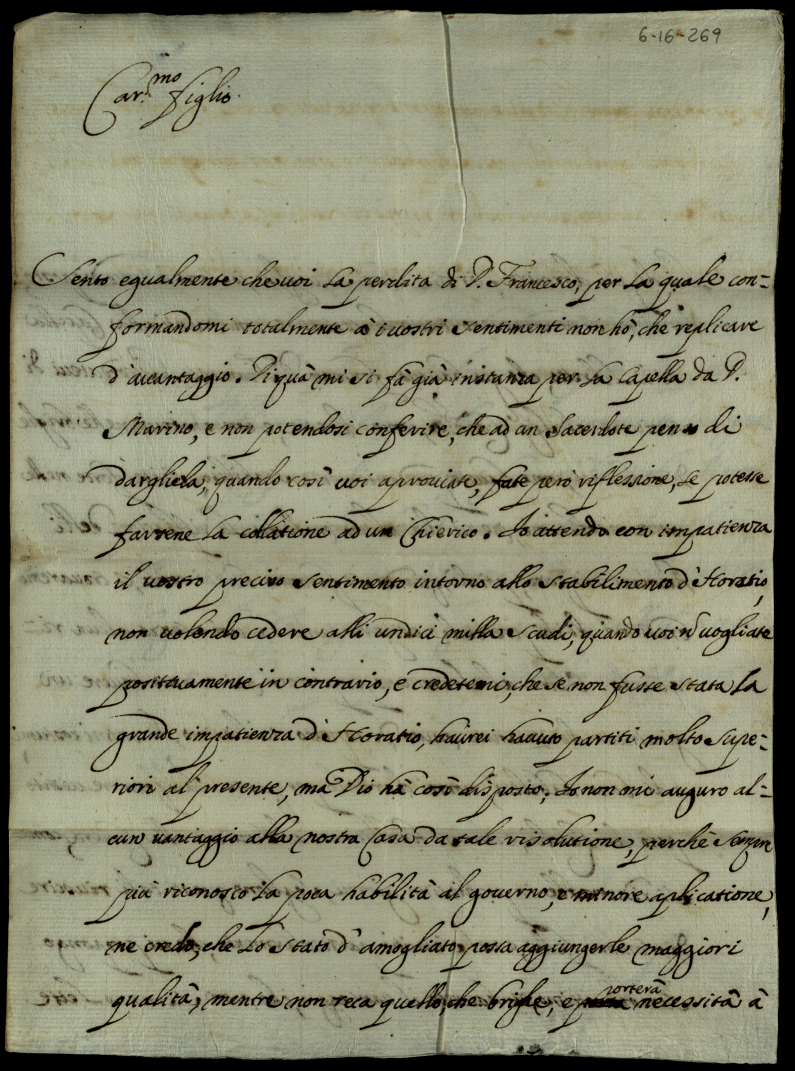 6-16-269
Car.mo figlio.
Sento egualmente che voi la perdita di D. Francesco, per la quale con=
formandomi totalmente à i vostri sentimenti non hò, che replicare
d'avantaggio. Di quà mi si fà già instanza per la Capella da D.
Marino, e non potendosi conferire, che ad un Sacerdote penso di
dargliela, quando così voi aproviate, fate però riflessione, se potesse
farsene la collatione ad un Chierico. Io attendo con impatienza
il vostro preciso sentimento intorno allo stabilimento d'Horatio,
non volendo cedere alli undici milla scudi, quando voi nõ vogliate
positivamente in contrario, e credetemi, che se non fusse stata la
grande impatienza d'Horatio, haurei hauuto partiti molto supe=
riori al presente, ma Dio hà così disposto. Io non mi auguro al=
cun vantaggio alla nostra Casa da tale risolutione, perche sempre
più riconosco la poca habilità al governo, e minore aplicatione,
ne credo, che lo stato d'amogliato possa aggiungerle maggiori
qualità, mentre non reca quello, che brighe, e porterà necessità à